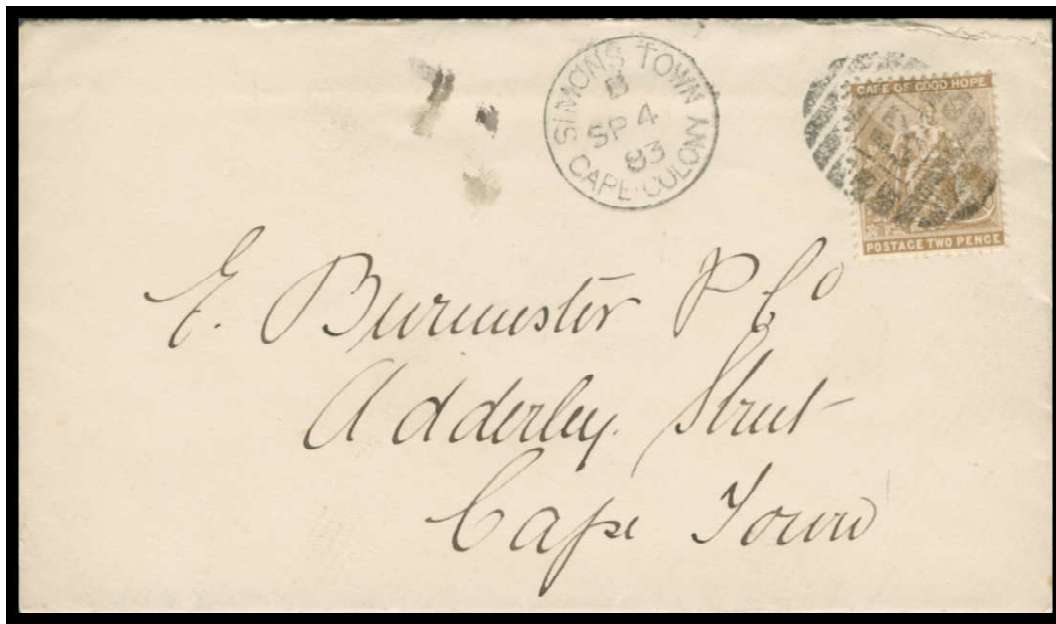 SIMONS TOWN
B
SP 4
83
CAPE COLONY
CAPE OF GOOD HOPE
POSTAGE TWO PENCE
E. Burmester & Co
Adderley Street
Cape Town